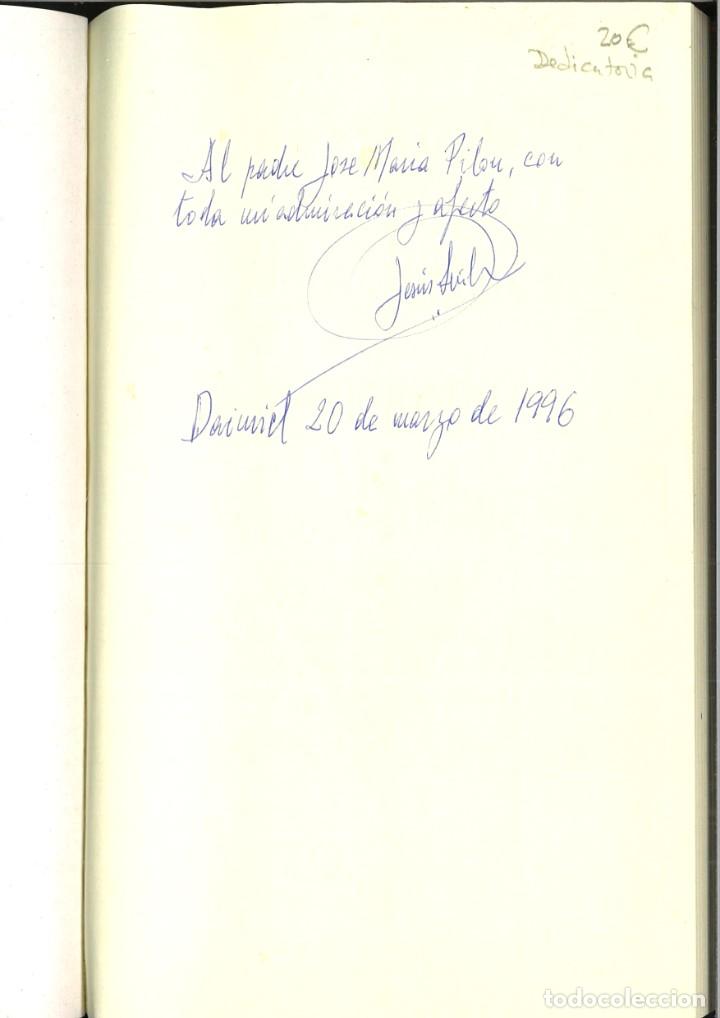 20€
Dedicatoria
Al padre Jose Maria Pilon, con
toda mi admiración y afecto
Jesús
Daimiel 20 de marzo de 1996
todocoleccion